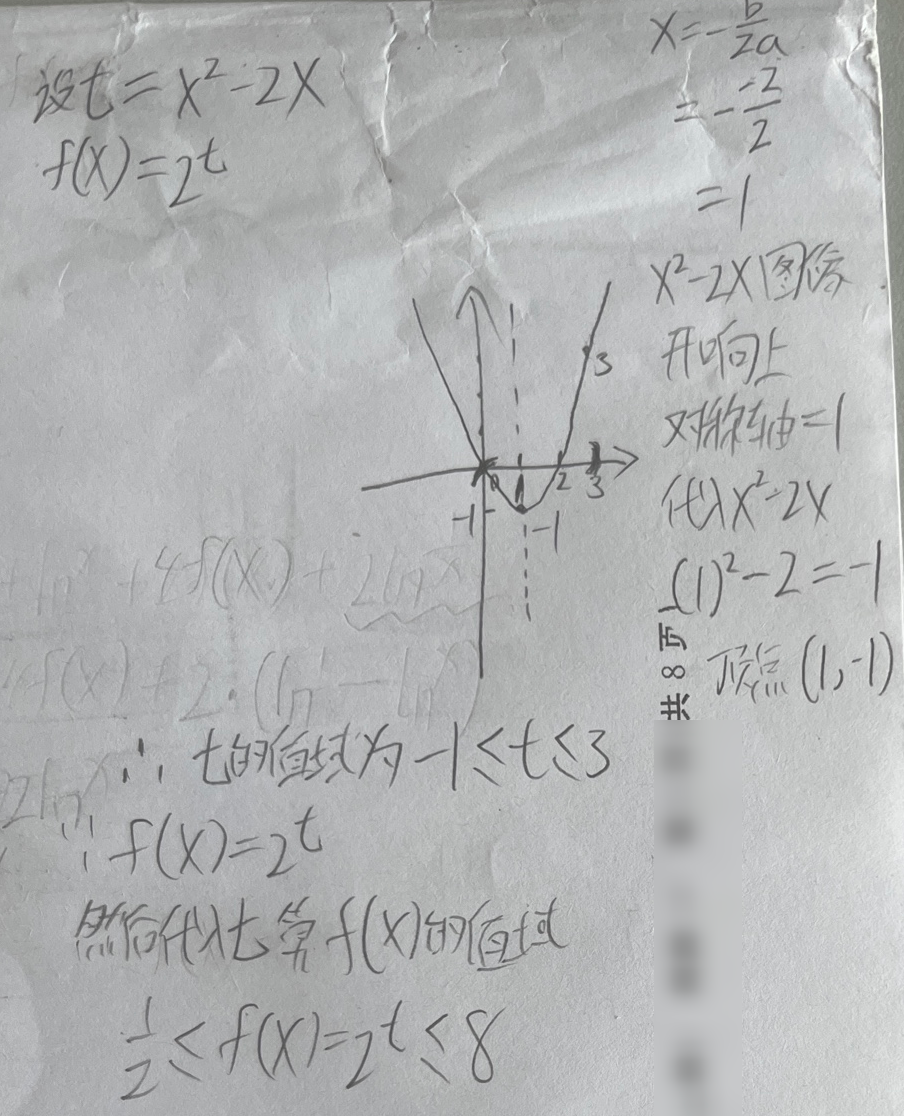 设t=x²-2x
f(x)=2^t
x=-b/2a
=- -2/2
=1
x²-2x图像
开口向上
对称轴=1
代入x²-2x
(1)²-2=-1
顶点(1,-1)
3
0 2 3
-1 -1
共 8 页
+4f(x)+2ln x
f(x)+2·(ln
∴ t的值域为 -1≤t≤3
∵ f(x)=2^t
然后代入t算f(x)的值域
1/2≤f(x)=2^t≤8